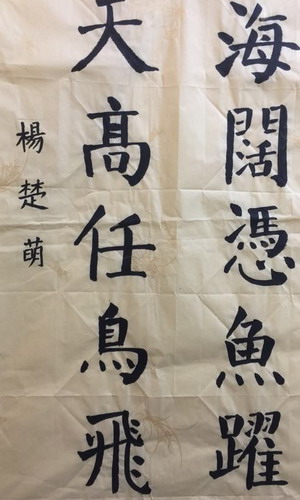 海闊憑魚躍
天髙任鳥飛
楊楚萌